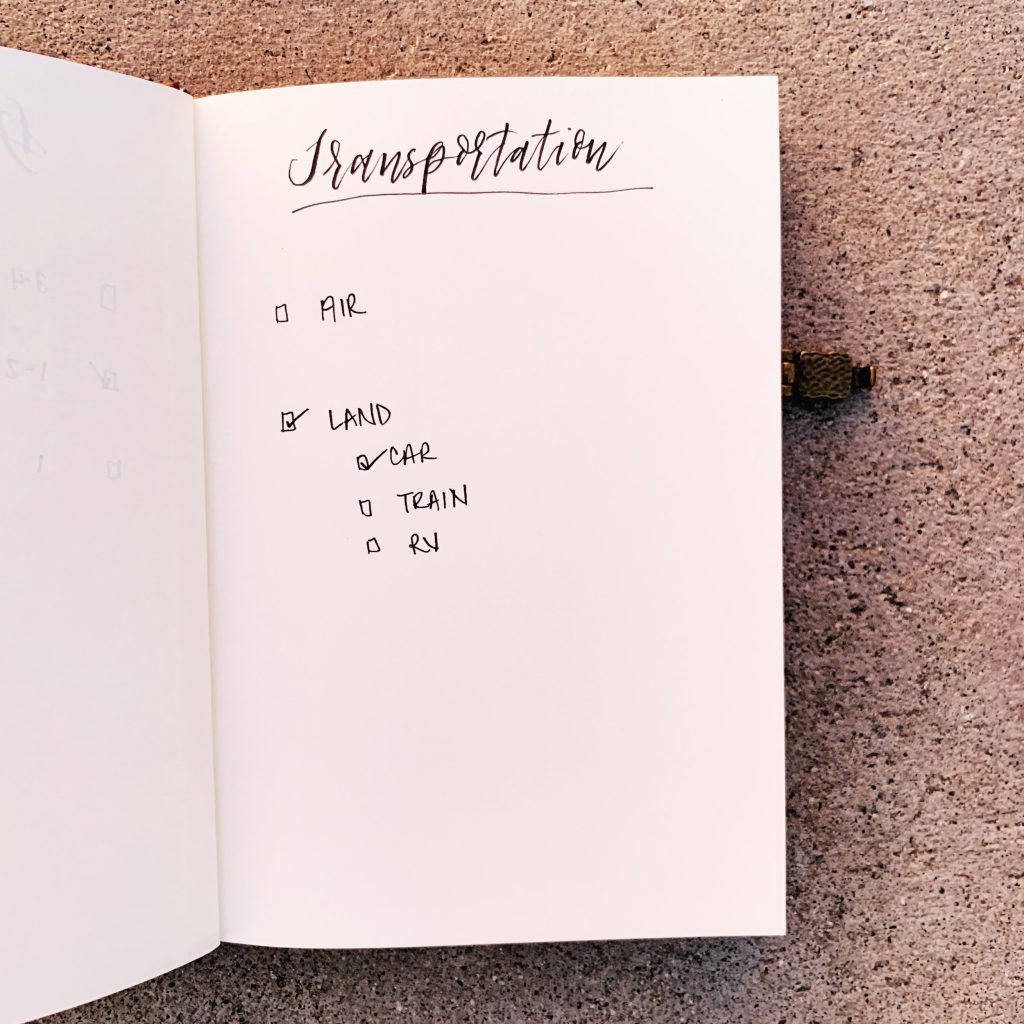 Transportation
AIR
LAND
CAR
TRAIN
RV
3-4
1-2
1